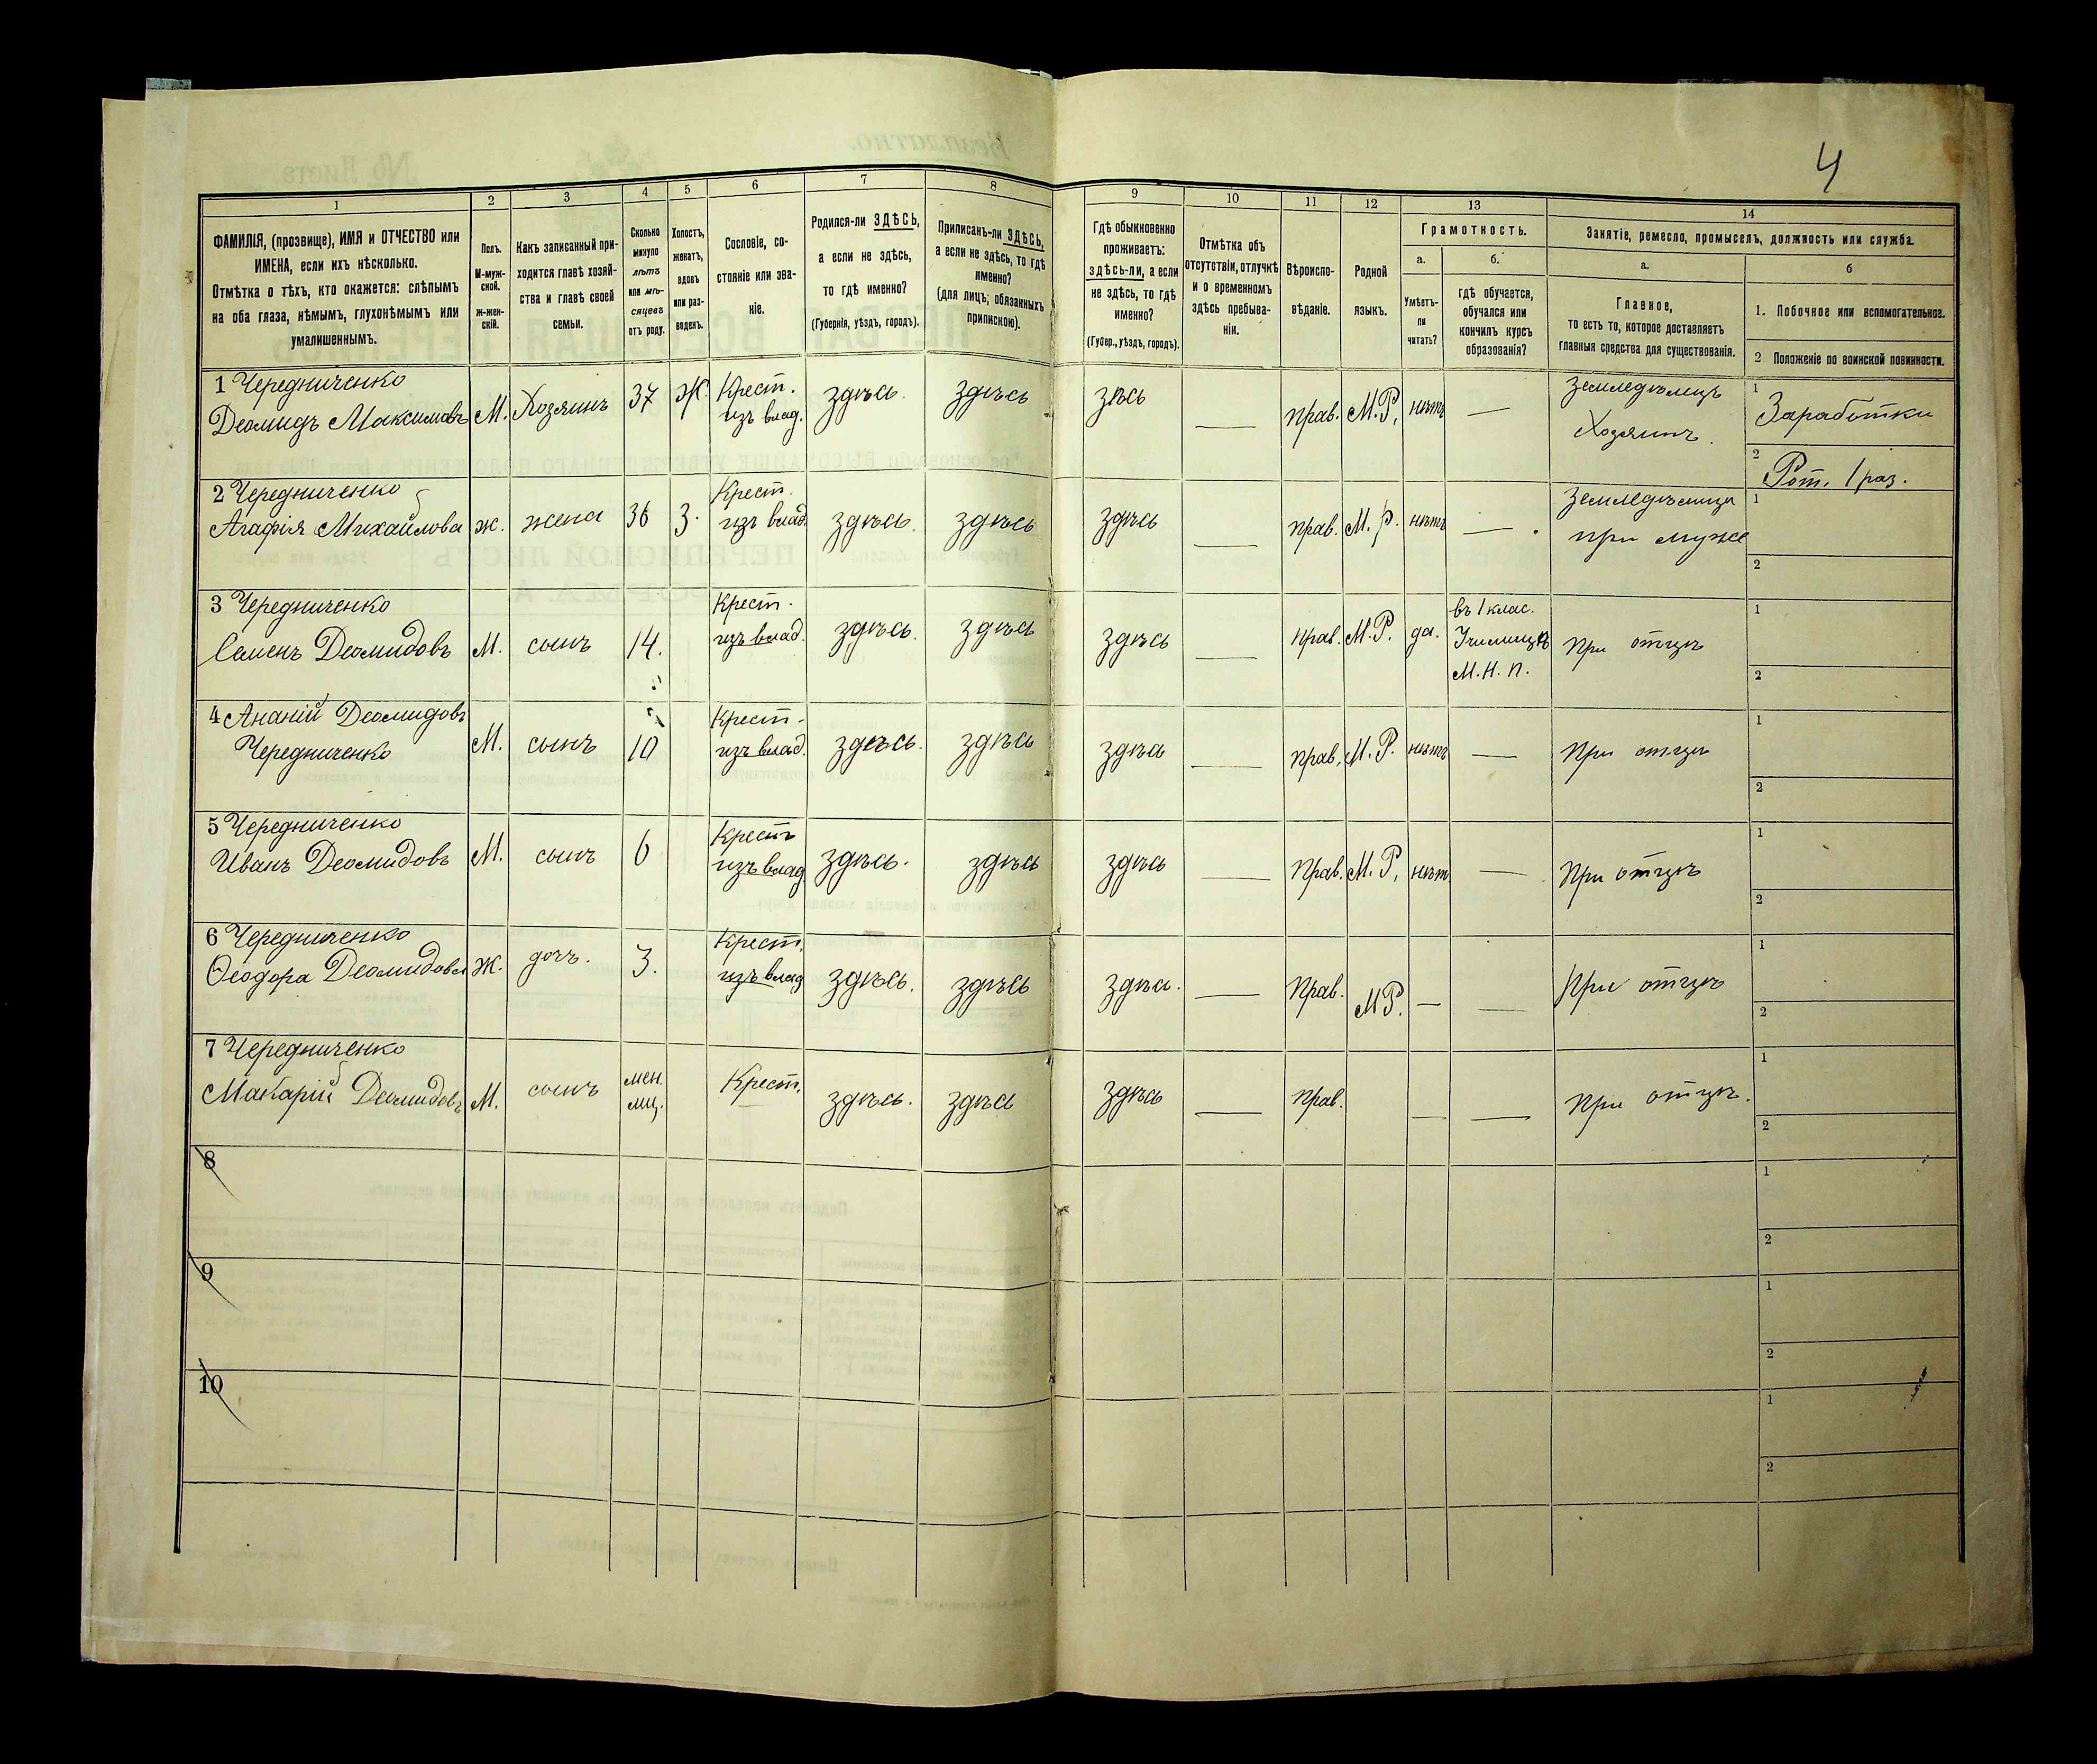 4
1
2
3
4
5
6
7
8
9
10
11
12
13
14
ФАМИЛІЯ, (прозвище), ИМЯ и ОТЧЕСТВО или
ИМЕНА, если ихъ нѣсколько.
Отмѣтка о тѣхъ, кто окажется: слѣпымъ
на оба глаза, нѣмымъ, глухонѣмымъ или
умалишеннымъ.
Полъ.
М-муж-
ской.
Ж-жен-
скій.
Какъ записанный при-
ходится главѣ хозяй-
ства и главѣ своей
семьи.
Сколько
минуло
лѣтъ
или мѣ-
сяцевъ
отъ роду.
Холостъ,
женатъ,
вдовъ
или раз-
веденъ.
Сословіе, со-
стояніе или зва-
ніе.
Родился-ли ЗДѢСЬ,
а если не здѣсь,
то гдѣ именно?
(Губернія, уѣздъ, городъ).
Приписанъ-ли ЗДѢСЬ,
а если не здѣсь, то гдѣ
именно?
(для лицъ, обязанныхъ
припискою).
Гдѣ обыкновенно
проживаетъ:
здѣсь-ли, а если
не здѣсь, то гдѣ
именно?
(Губер., уѣздъ, городъ).
Отмѣтка объ
отсутствіи, отлучкѣ
и о временномъ
здѣсь пребыва-
ніи.
Вѣроиспо-
вѣданіе.
Родной
языкъ.
Грамотность.
а.
Умѣетъ-
ли
читать?
б.
гдѣ обучается,
обучался или
кончилъ курсъ
образованія?
Занятіе, ремесло, промыселъ, должность или служба.
а.
Главное,
то есть то, которое доставляетъ
главныя средства для существованія.
б
1. Побочное или вспомогательное.
2 Положеніе по воинской повинности.
1 Чередниченко
Деомидъ Максимовъ
М.
Хозяинъ
37
Ж.
Крест.
изъ влад.
здѣсь.
здѣсь
здѣсь
—
прав.
М.Р.
нѣтъ
—
Земледѣлецъ
Хозяинъ.
1
Заработки
2
Рат. 1 раз.
2 Чередниченко
Агафія Михайлова
ж.
жена
36
З.
Крест.
изъ влад.
здѣсь.
здѣсь
здѣсь
—
прав.
М. Р.
нѣтъ
—
Земледѣлица
при мужѣ
1
2
3 Чередниченко
Семенъ Деомидовъ
М.
сынъ
14.
Крест.
изъ влад.
здѣсь.
здѣсь
здѣсь
—
прав.
М.Р.
да.
въ 1 клас.
Училищѣ
М. Н. П.
При отцѣ
1
2
4 Ананій Деомидовъ
Чередниченко
М.
сынъ
10
Крест.
изъ влад.
здѣсь.
здѣсь
здѣсь
—
прав.
М. Р.
нѣтъ
—
При отцѣ
1
2
5 Чередниченко
Иванъ Деомидовъ
М.
сынъ
6
Крест
изъ влад
здѣсь.
здѣсь
здѣсь
—
Прав.
М. Р.
нѣтъ
—
При отцѣ
1
2
6 Чередниченко
Ѳеодора Деомидова
Ж.
дочь.
3.
Крест.
изъ влад
здѣсь.
здѣсь
здѣсь.
—
Прав.
МР.
—
—
При отцѣ
1
2
7 Чередниченко
Макарій Деомидовъ
М.
сынъ
мен.
мц.
Крест.
здѣсь.
здѣсь
здѣсь
—
прав.
—
—
При отцѣ.
1
2
8
1
2
9
1
2
10
1
2